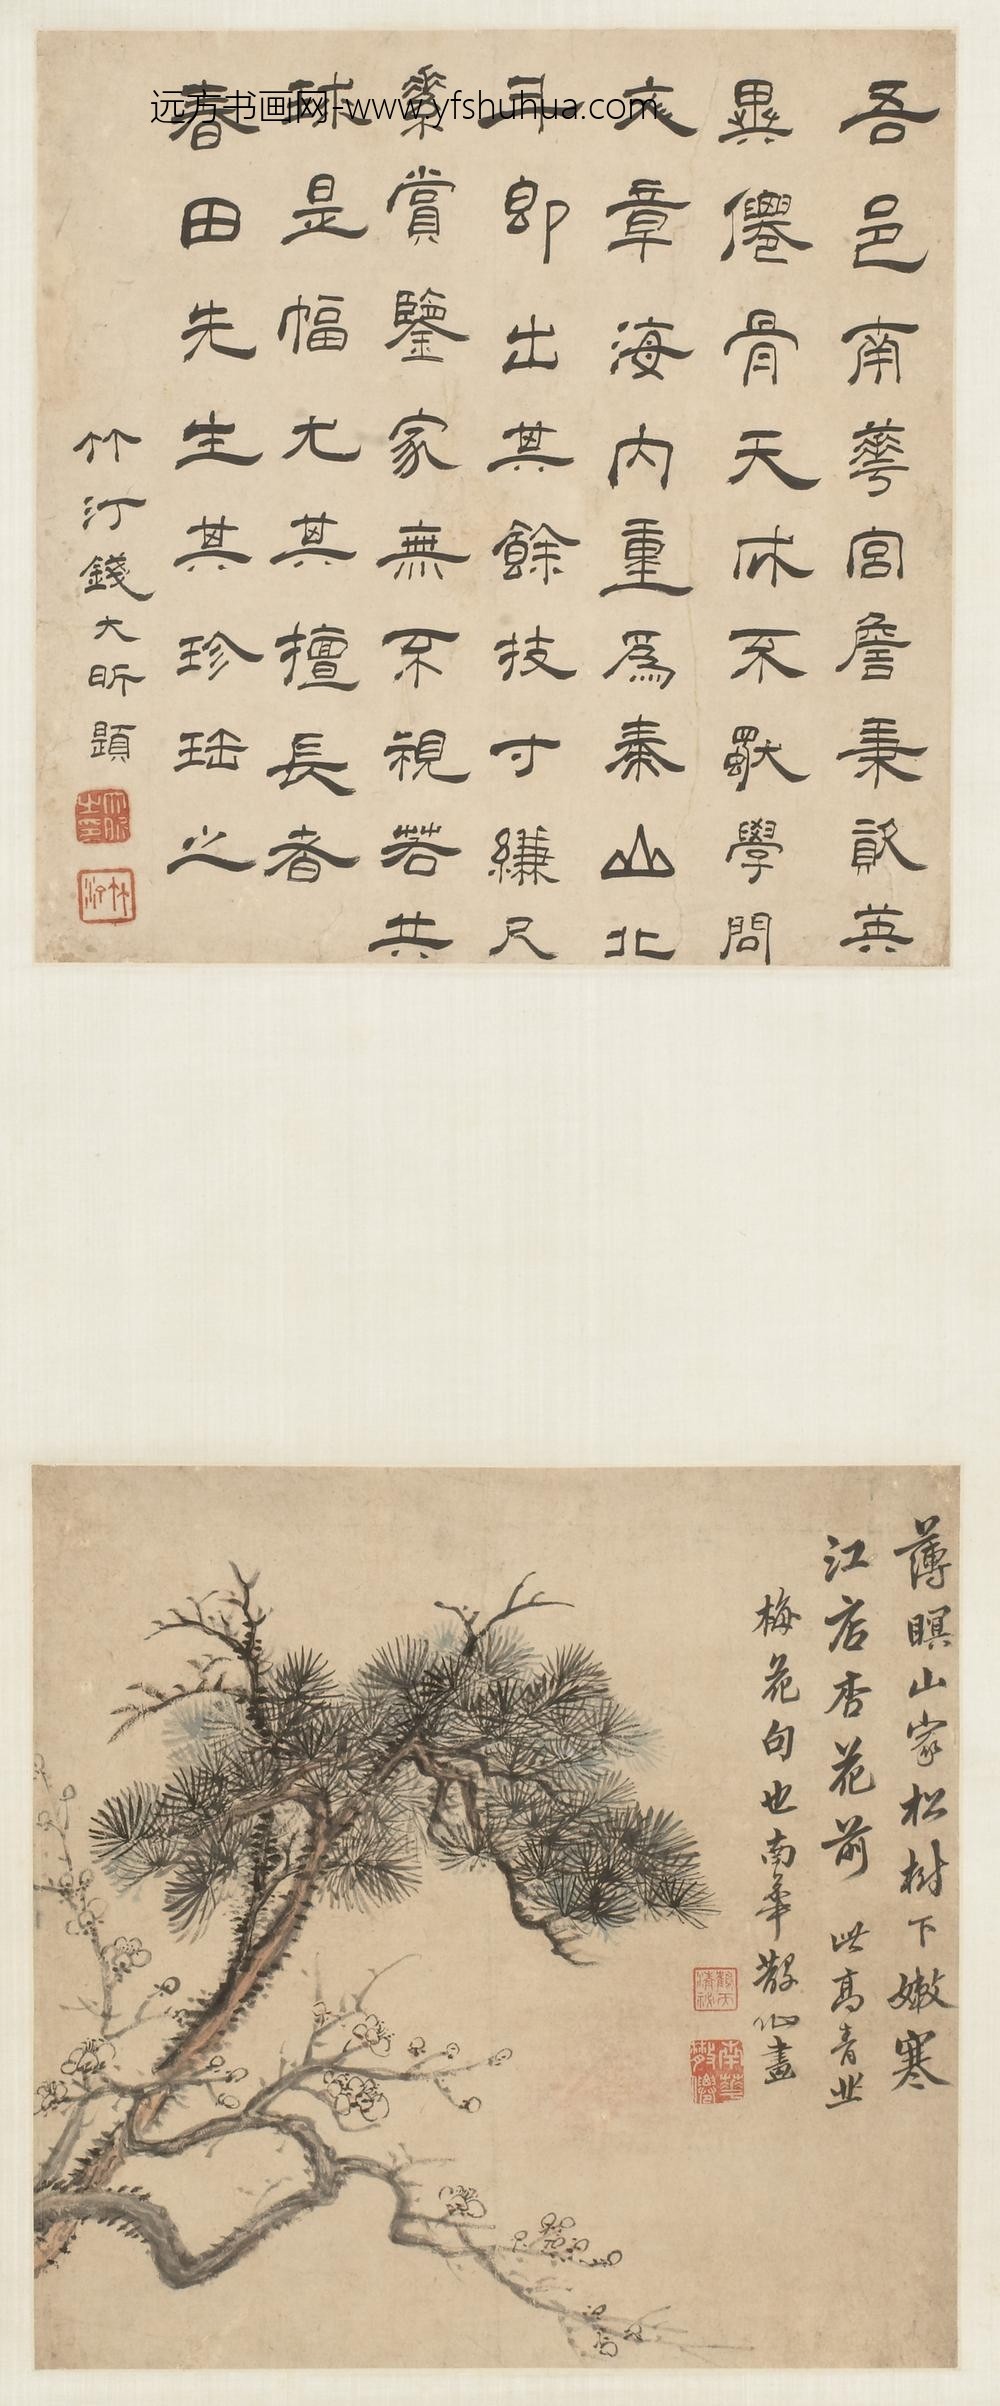 远方书画网-www.yfshuhua.com
吾邑南華宮詹秉英
異僊骨天成不獨學問
文章海内重為泰山北
斗即出其餘技寸縑尺
素賞鑒家無不視若共
球是幅尤其擅長者
春田先生其珍珤之
竹汀錢大昕題
大昕之印
竹汀
薄暝山家松樹下嫩寒
江店杏花前 此高青丘
梅花句也南華散仙畫
南華散僊